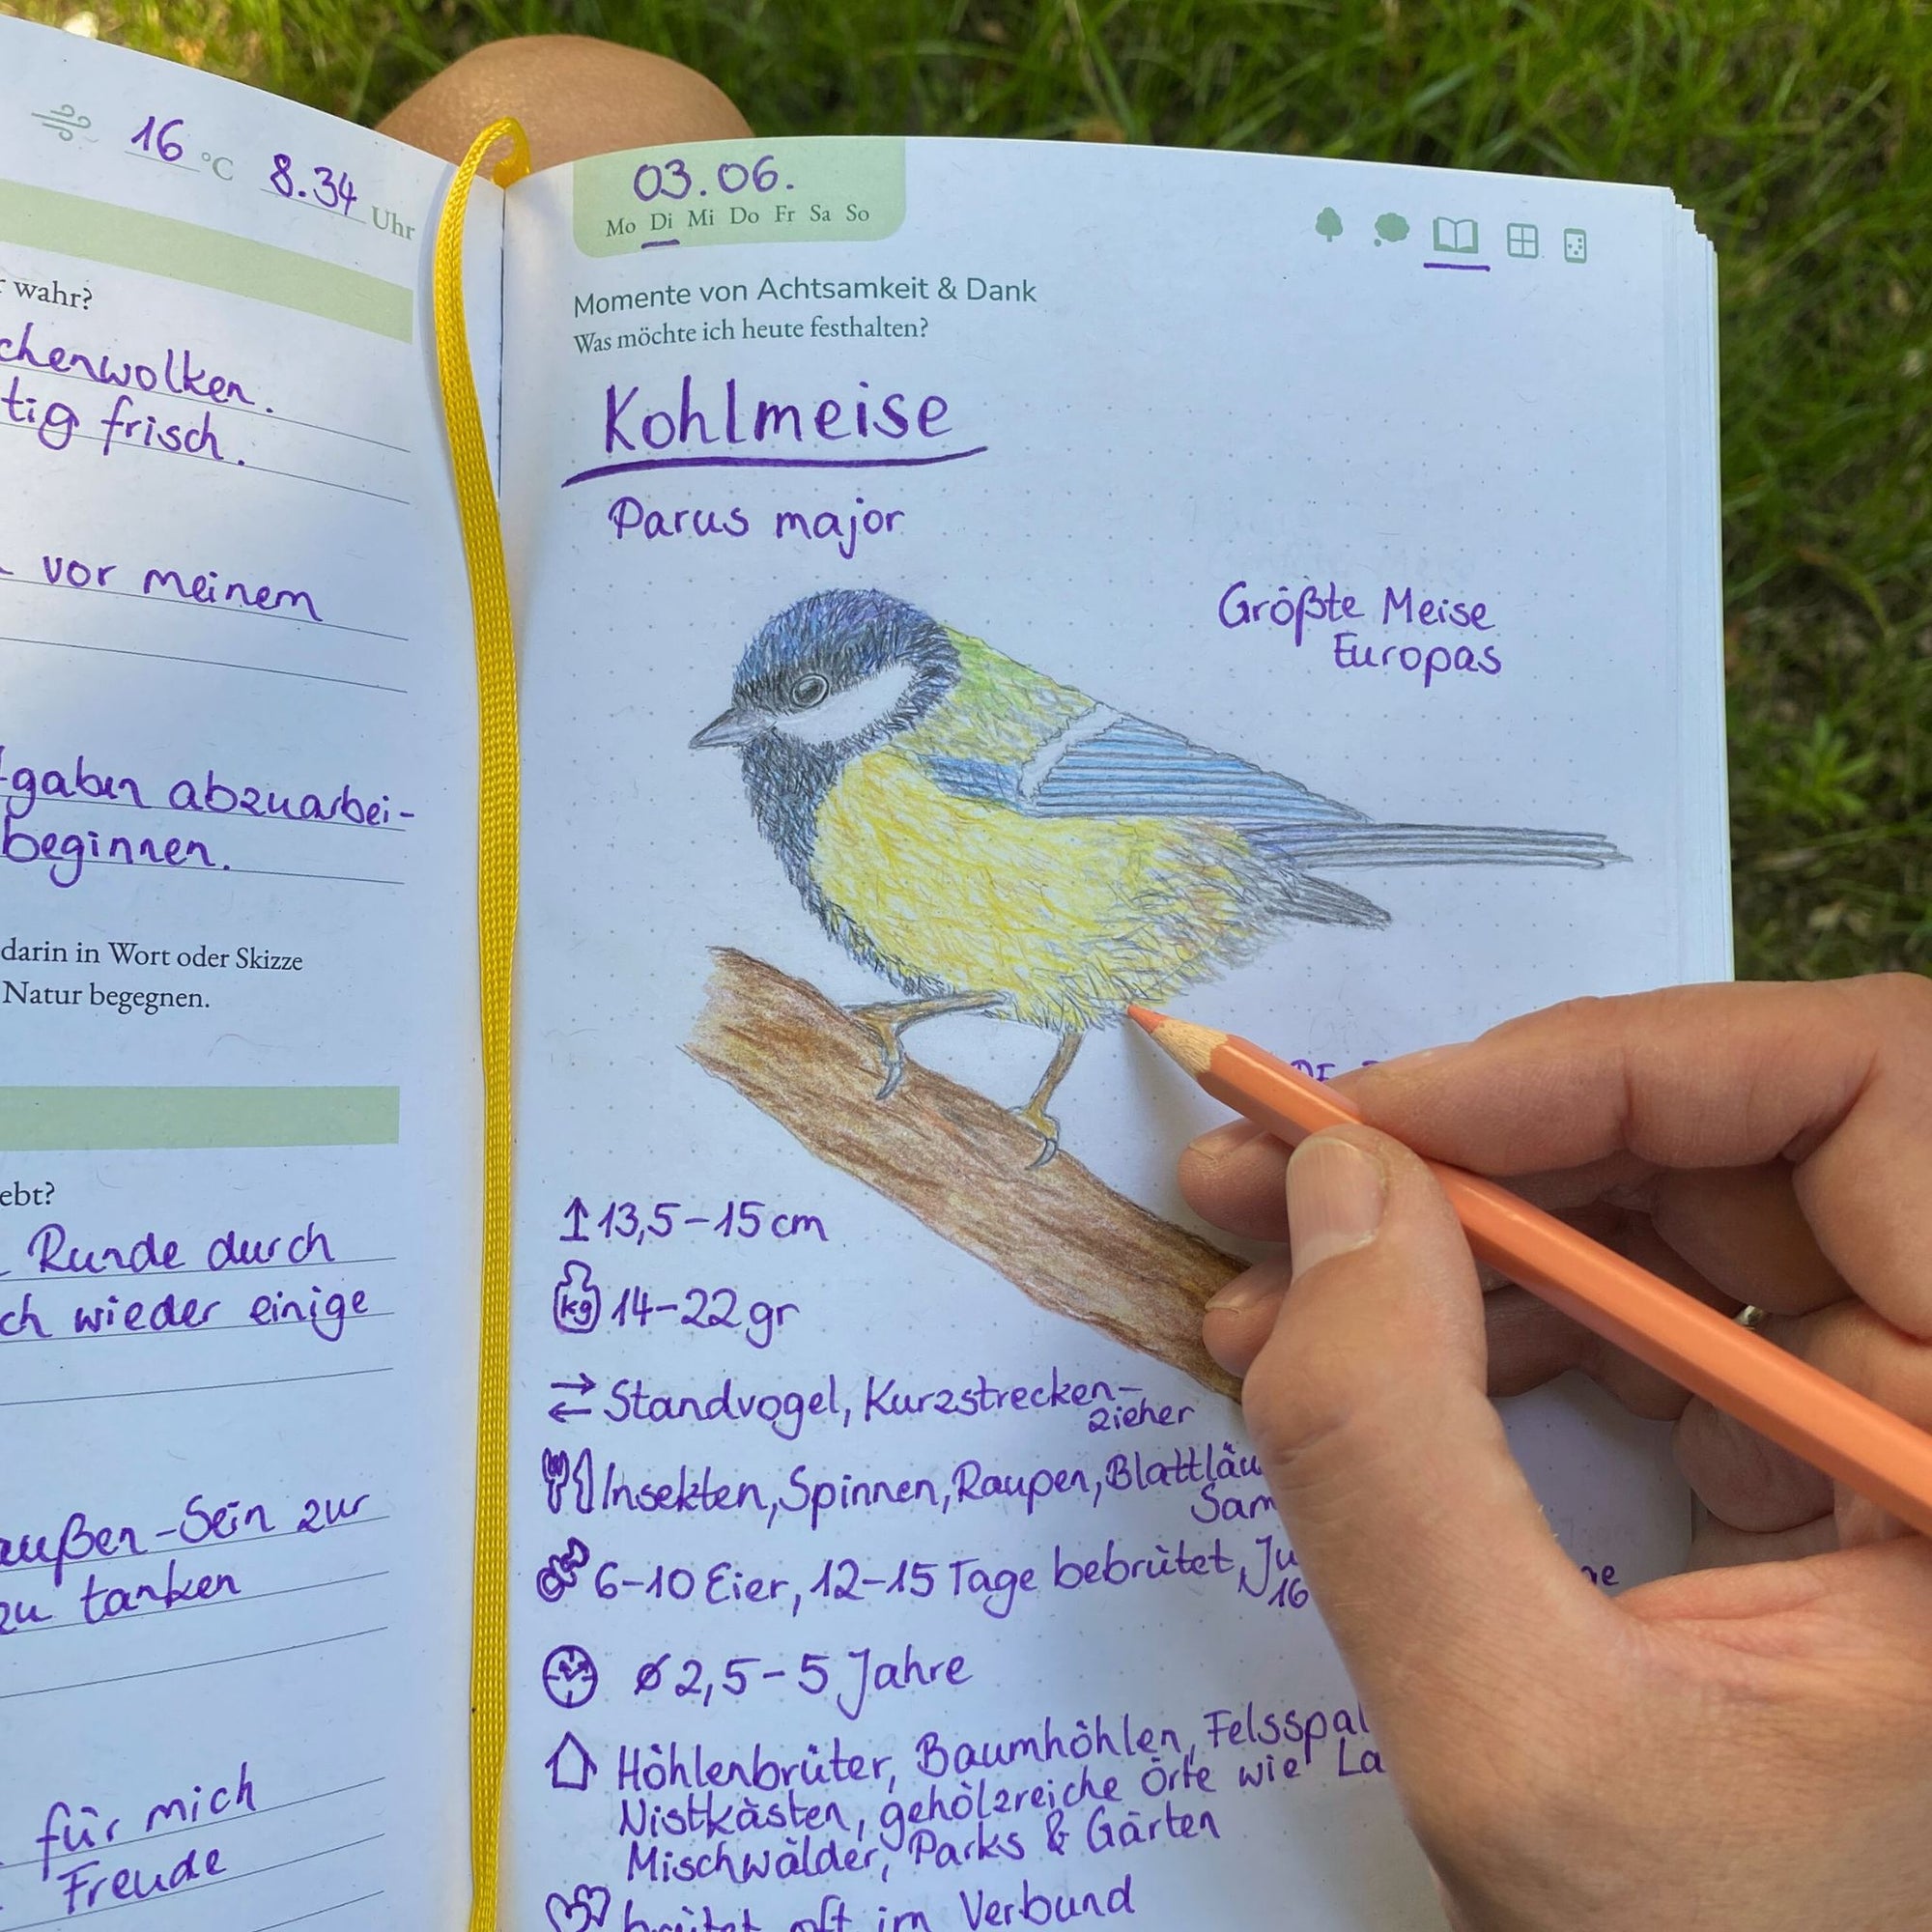 16 °C 8.34 Uhr
wahr?
chenwolken.
tig frisch.
vor meinem
gaben abzuarbei-
beginnen.
darin in Wort oder Skizze
Natur begegnen.
ebt?
Runde durch
ch wieder einige
außen-Sein zur
zu tanken
für mich
Freude
03.06.
Mo Di Mi Do Fr Sa So
Momente von Achtsamkeit & Dank
Was möchte ich heute festhalten?
Kohlmeise
Parus major
Größte Meise
Europas
13,5-15 cm
kg 14-22 gr
Standvogel, Kurzstrecken-
zieher
Insekten, Spinnen, Raupen, Blattläu
Sam
6-10 Eier, 12-15 Tage bebrütet, Ju
16
ø 2,5-5 Jahre
Höhlenbrüter, Baumhöhlen, Felsspal
Nistkästen, gehölzreiche Orte wie La
Mischwälder, Parks & Gärten
brütet oft im Verbund